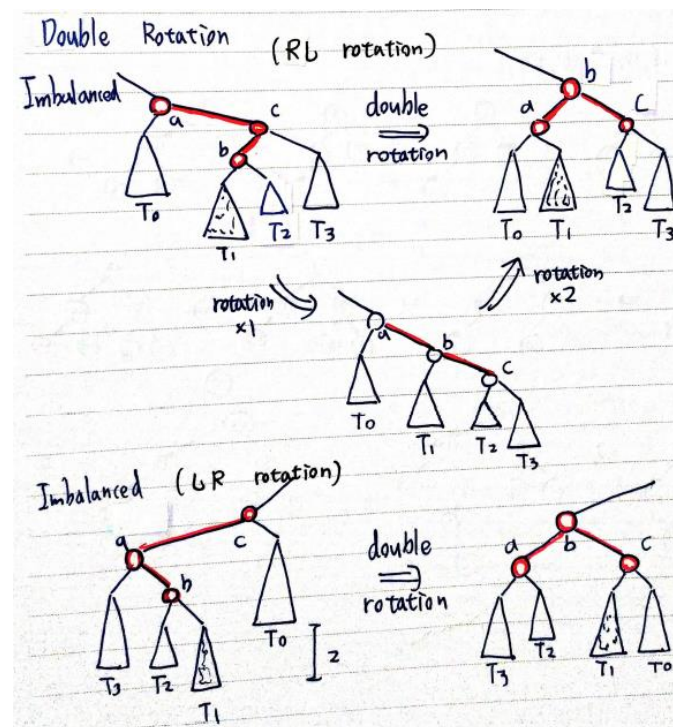 Double Rotation (RL rotation)
Imbalanced
a
c
b
T0
T1
T2
T3
double
rotation
b
a
C
T0
T1
T2
T3
rotation
x1
rotation
x2
a
b
c
T0
T1
T2
T3
Imbalanced (LR rotation)
a
c
b
T3
T2
T1
T0
2
double
rotation
a
b
C
T3
T2
T1
T0